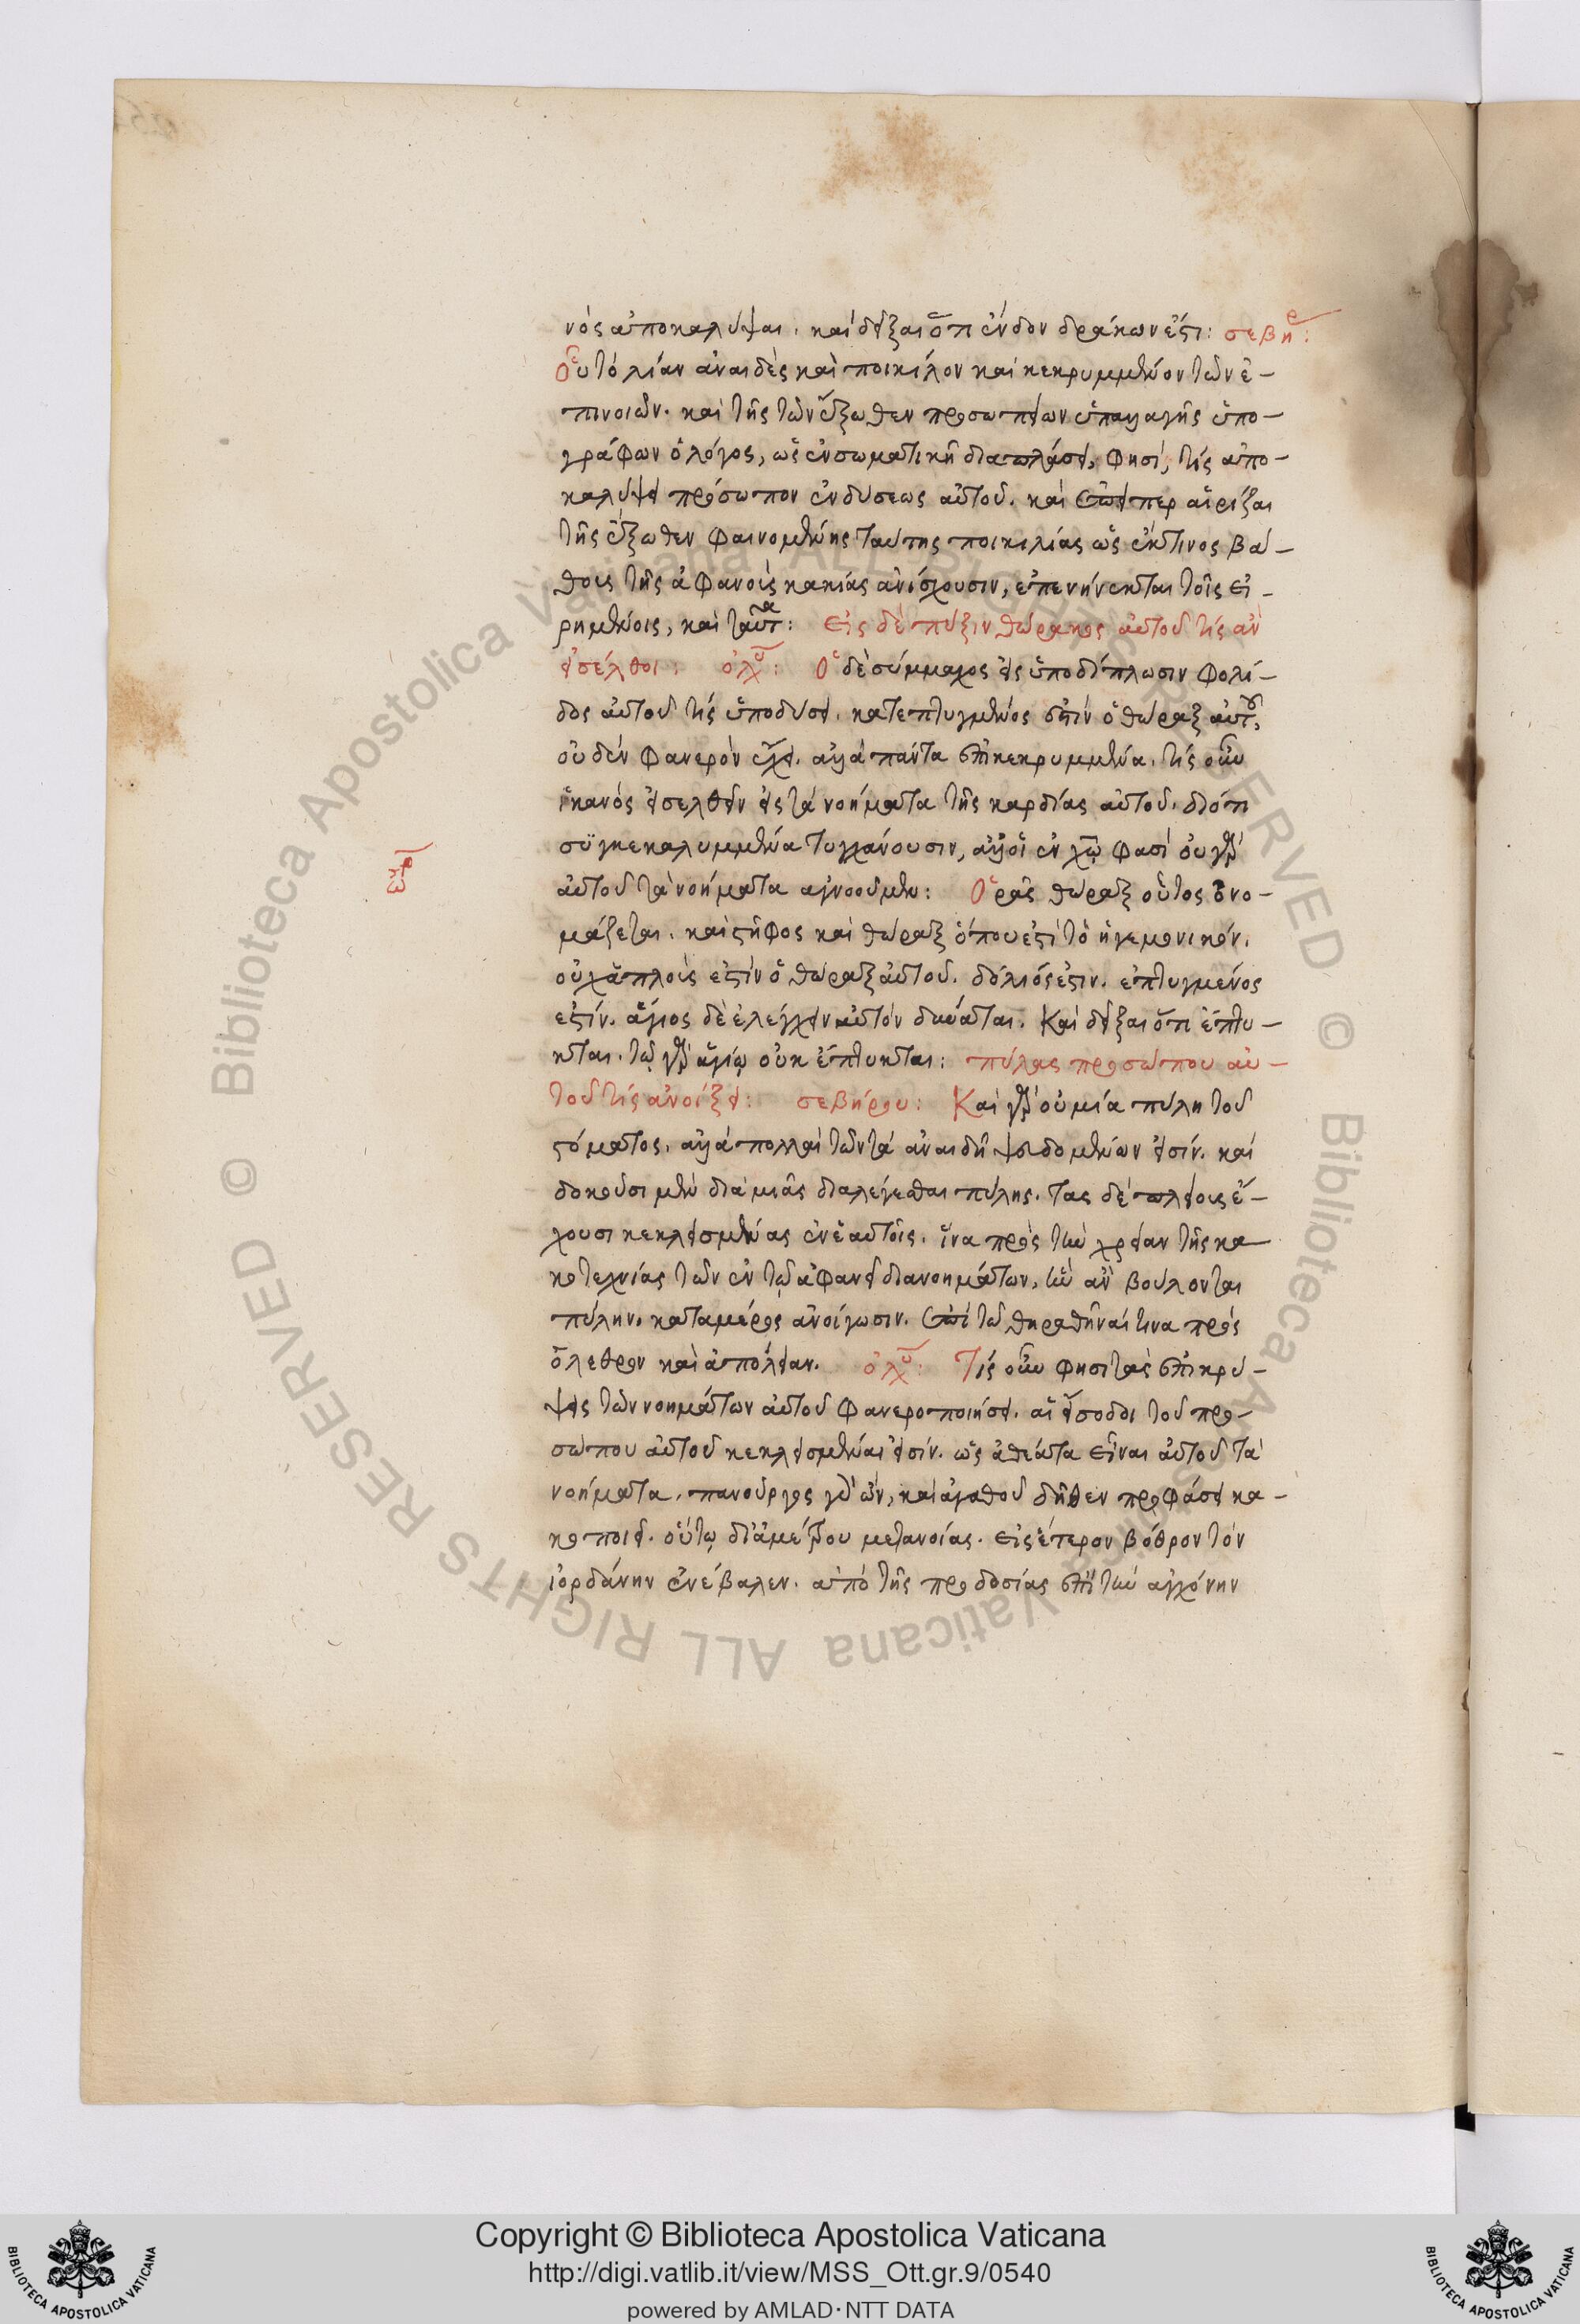 νὸς ἀποκαλύψαι. καὶ δεῖξαι ὅτι ἔνδον δράκων ἐστι: σεβήρ:
Οὕτω λίαν ἀναιδὲς καὶ ποικίλον καὶ κεκρυμμένον τῶν ἐ-
πινοιῶν. καὶ τῆς τῶν ἔξωθεν προσωπείων ὑπαλαγῆς ὑπο-
γράφων ὁ λόγος, ὡς ἐν σωματικῆ διαπλάσει, φησί, τίς ἀπο-
καλύψει πρόσωπον ἐνδύσεως αὐτοῦ. καὶ ἐπείπερ αἱ ῥίζαι
τῆς ἔξωθεν φαινομένης ταύτης ποικιλίας ὡς ἔκ τινος βά-
θους τῆς ἀφανοῦς κακίας ἀνίσχουσιν, ἐπενήνεκται τοῖς εἰ-
ρημένοις, καὶ ταῦτα: Εἰς δὲ πτύξιν θώρακος αὐτοῦ τίς ἂν
εἰσέλθοι: ὀλυ: Ὁ δὲ σύμμαχος εἰς ὑποδίπλωσιν φολί-
δος αὐτοῦ τίς ὑποδύσει. κατεπτυγμένος ἐστὶν ὁ θώραξ αὐτοῦ,
οὐδὲν φανερὸν ἔχει. ἀλλὰ πάντα ἐπικεκρυμμένα. τίς οὖν
ἱκανὸς εἰσελθεῖν εἰς τὰ νοήματα τῆς καρδίας αὐτοῦ. διότι
συγκεκαλυμμένα τυγχάνουσιν, ἀλλ' οἱ ἐν χῶ φασὶ οὐ γὰρ
αὐτοῦ τὰ νοήματα ἀγνοοῦμεν: Ὁρᾶς θώραξ οὗτος ὀνο-
μάζεται. καὶ στῆθος καὶ θώραξ ὅπου ἐστὶ τὸ ἡγεμονικόν.
οὐχ ἁπλοῦς ἐστὶν ὁ θώραξ αὐτοῦ. δόλιός ἐστιν. ἐπτυγμένος
ἐστίν. ἅγιος δὲ ἐλέγχειν αὐτὸν δύναται. Καὶ δεῖξαι ὅτι ἔπτυ-
κται. τῷ γὰρ ἁγίῳ οὐκ ἔπτυκται: πύλας προσώπου αὐ-
τοῦ τίς ἀνοίξει: σεβήρου: Καὶ γὰρ οὐ μία πύλη τοῦ
στόματος, ἀλλὰ πολλαὶ τῶν τὰ ἀναιδῆ ψευδομένων εἰσίν. καὶ
δοκοῦσι μὲν διὰ μιᾶς διαλέγεσθαι πύλης. τὰς δὲ πλείους ἔ-
χουσι κεκλεισμένας ἐν ἑαυτοῖς. ἵνα πρὸς τὴν χρείαν τῆς κα
κοτεχνίας τῶν ἐν τῷ ἀφανεῖ διανοημάτων, ἣν ἂν βούλονται
πύλην. κατὰ μέρος ἀνοίγωσιν. ἐπὶ τῶ θηραθῆναί τινα πρὸς
ὄλεθρον καὶ ἀπώλειαν. ὀλυ: Τίς οὖν φησι τὰς ἐπικρύ-
ψεις τῶν νοημάτων αὐτοῦ φανεροποιήσει. αἱ εἴσοδοι τοῦ προ-
σώπου αὐτοῦ κεκλεισμέναι εἰσίν. ὡς ἀθέατα εἶναι αὐτοῦ τὰ
νοήματα. πανοῦργος γὰρ ὤν, καὶ ἀγαθοῦ δῆθεν προφάσει κα-
κοποιεῖ. οὕτω διὰ μέτρου μετανοίας. εἰς ἕτερον βόθρον τὸν
ἰορδάνην ἐνέβαλεν. ἀπὸ τῆς προδοσίας ἐπὶ τὴν ἀγχόνην
Copyright © Biblioteca Apostolica Vaticana
http://digi.vatlib.it/view/MSS_Ott.gr.9/0540
powered by AMLAD·NTT DATA